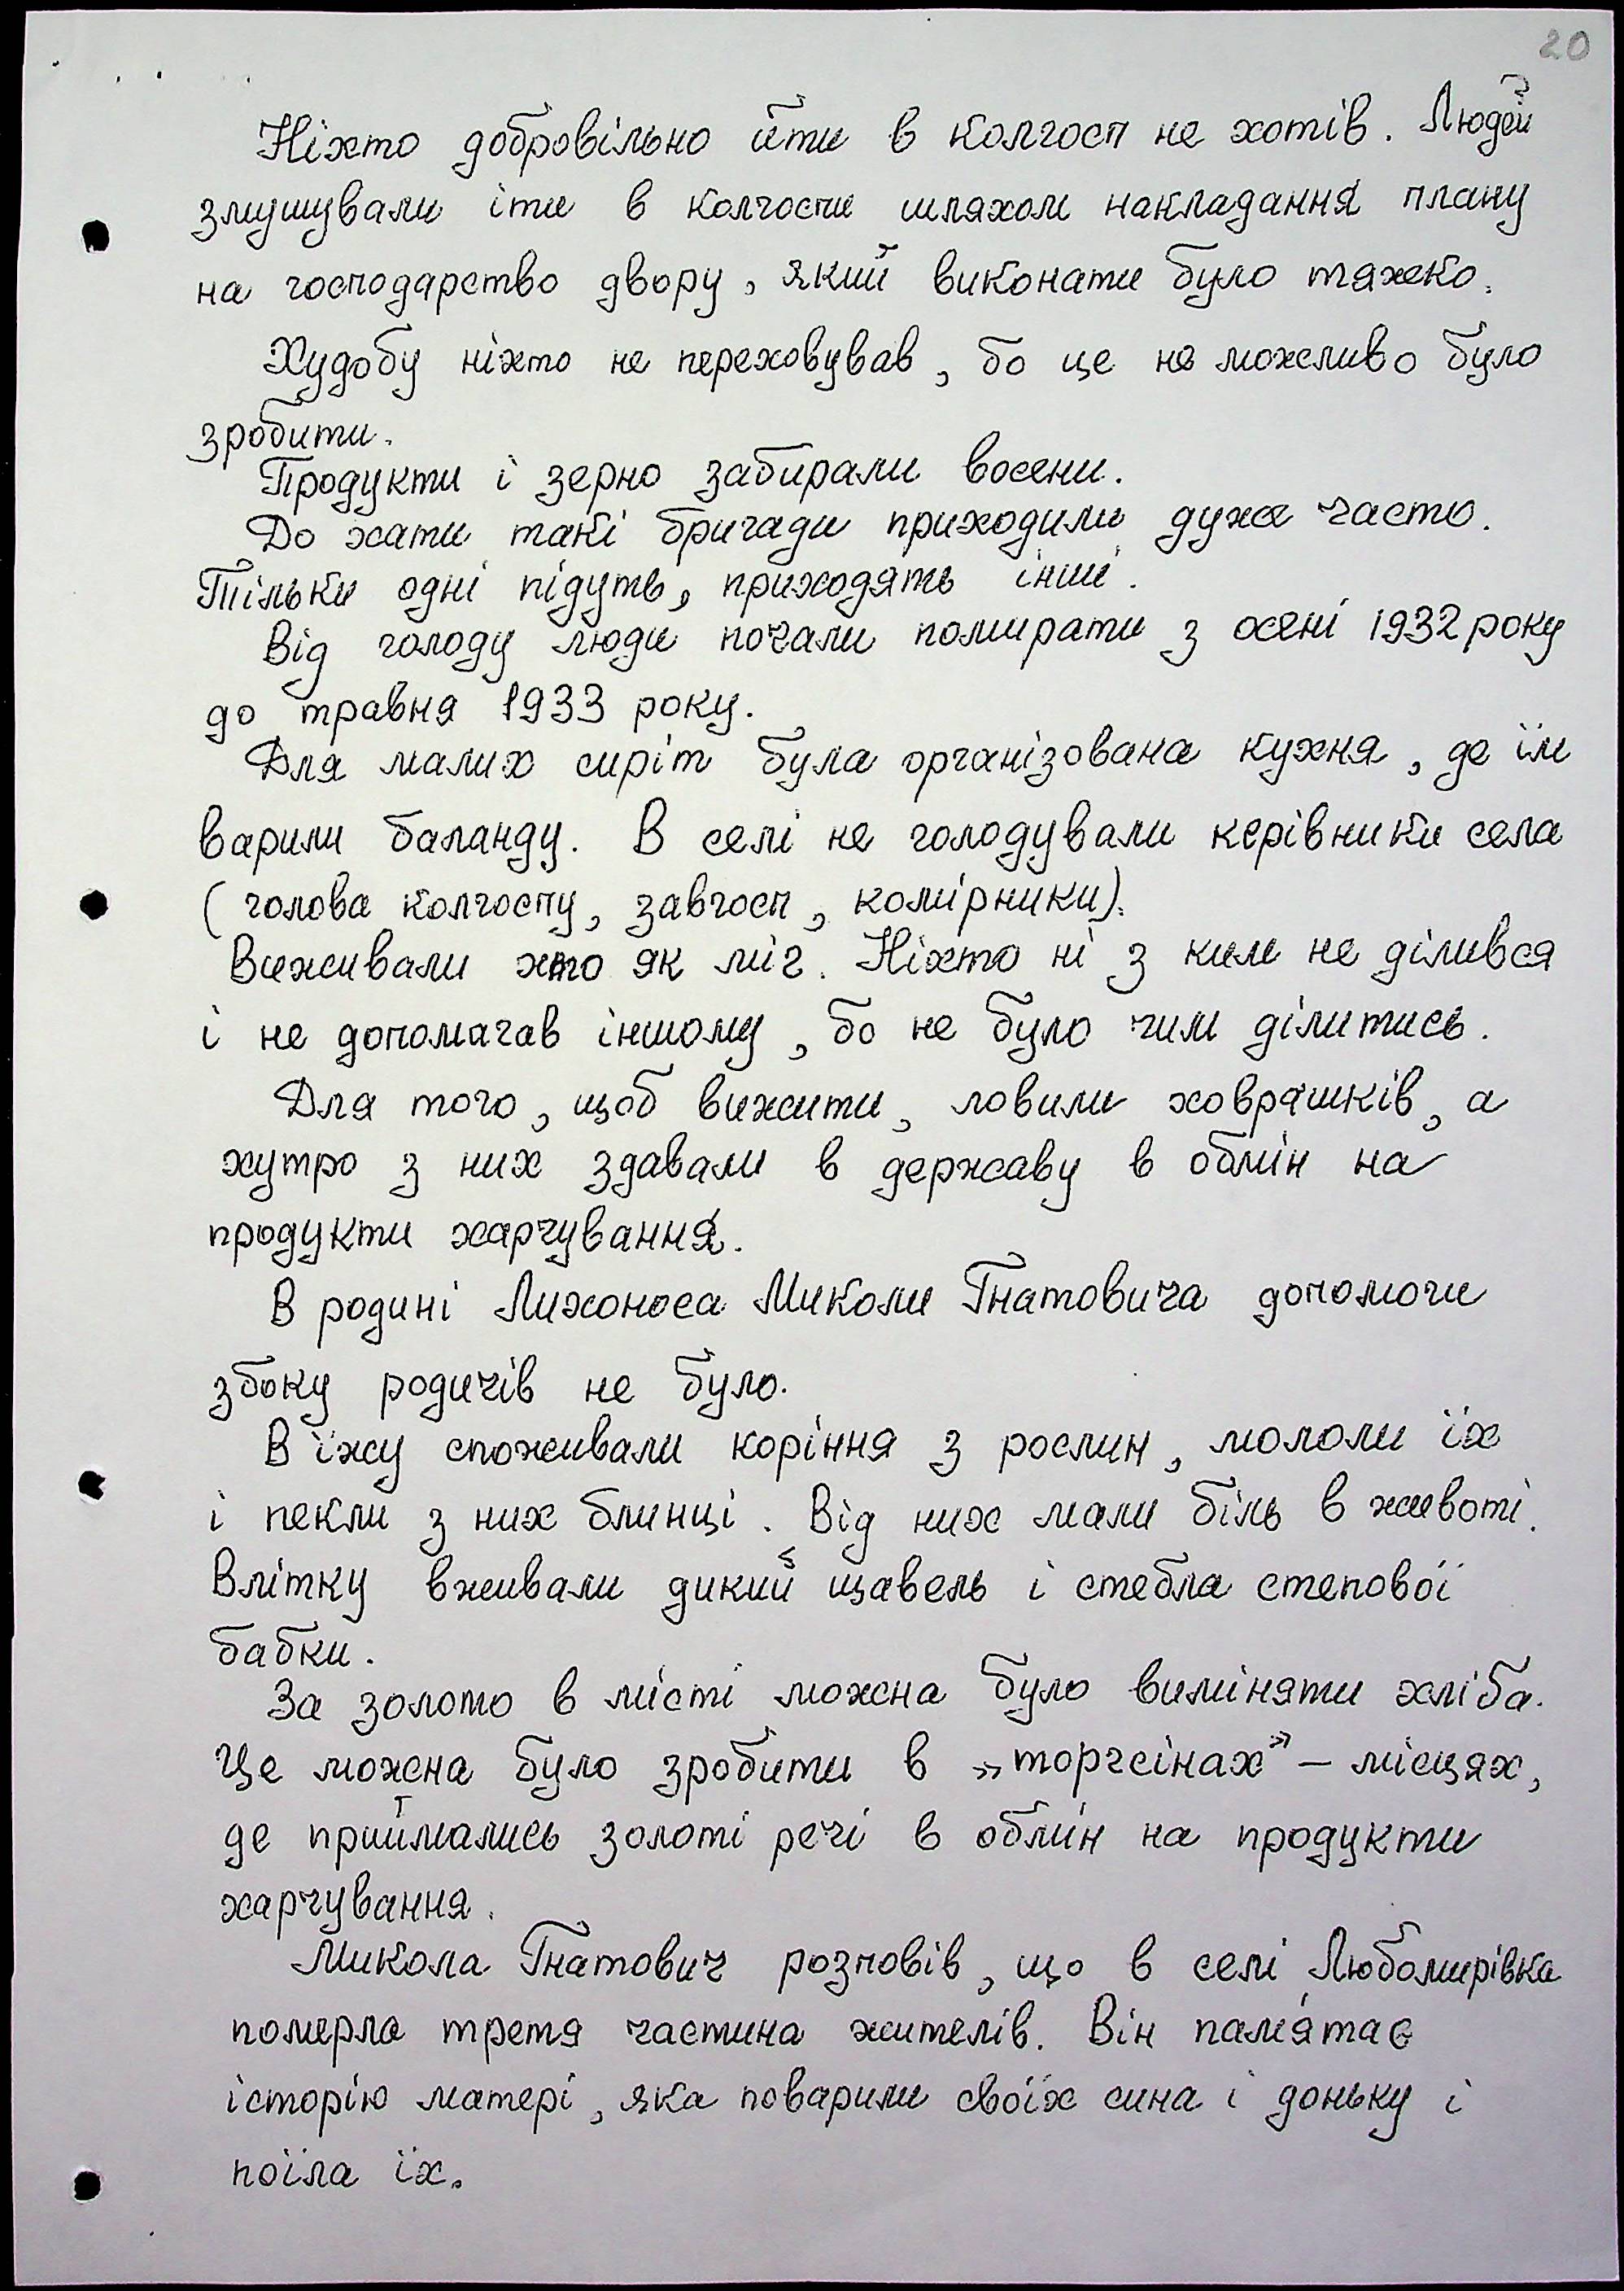 20
Ніхто добровільно йти в колгосп не хотів. Людей
змушували іти в колгоспи шляхом накладання плану
на господарство двору, який виконати було тяжко.
Худобу ніхто не переховував, бо це не можливо було
зробити.
Продукти і зерно забирали восени.
До хати такі бригади приходили дуже часто.
Тільки одні підуть, приходять інші.
Від голоду люди почали помирати з осені 1932 року
до травня 1933 року.
Для малих сиріт була організована кухня, де їм
варили баланду. В селі не голодували керівники села
(голова колгоспу, завгосп, комірники).
Виживали хто як міг. Ніхто ні з ким не ділився
і не допомагав іншому, бо не було чим ділитись.
Для того, щоб вижити, ловили ховрашків, а
хутро з них здавали в державу в обмін на
продукти харчування.
В родині Лихоноса Миколи Гнатовича допомоги
збоку родичів не було.
В їжу споживали коріння з рослин, мололи їх
і пекли з них блинці. Від них мали біль в животі.
Влітку вживали дикий щавель і стебла степової
бабки.
За золото в місті можна було виміняти хліба.
Це можна було зробити в „торгсінах" – місцях,
де приймались золоті речі в обмін на продукти
харчування.
Микола Гнатович розповів, що в селі Любомирівка
померла третя частина жителів. Він пам'ятає
історію матері, яка поварили своїх сина і доньку і
поїла їх.